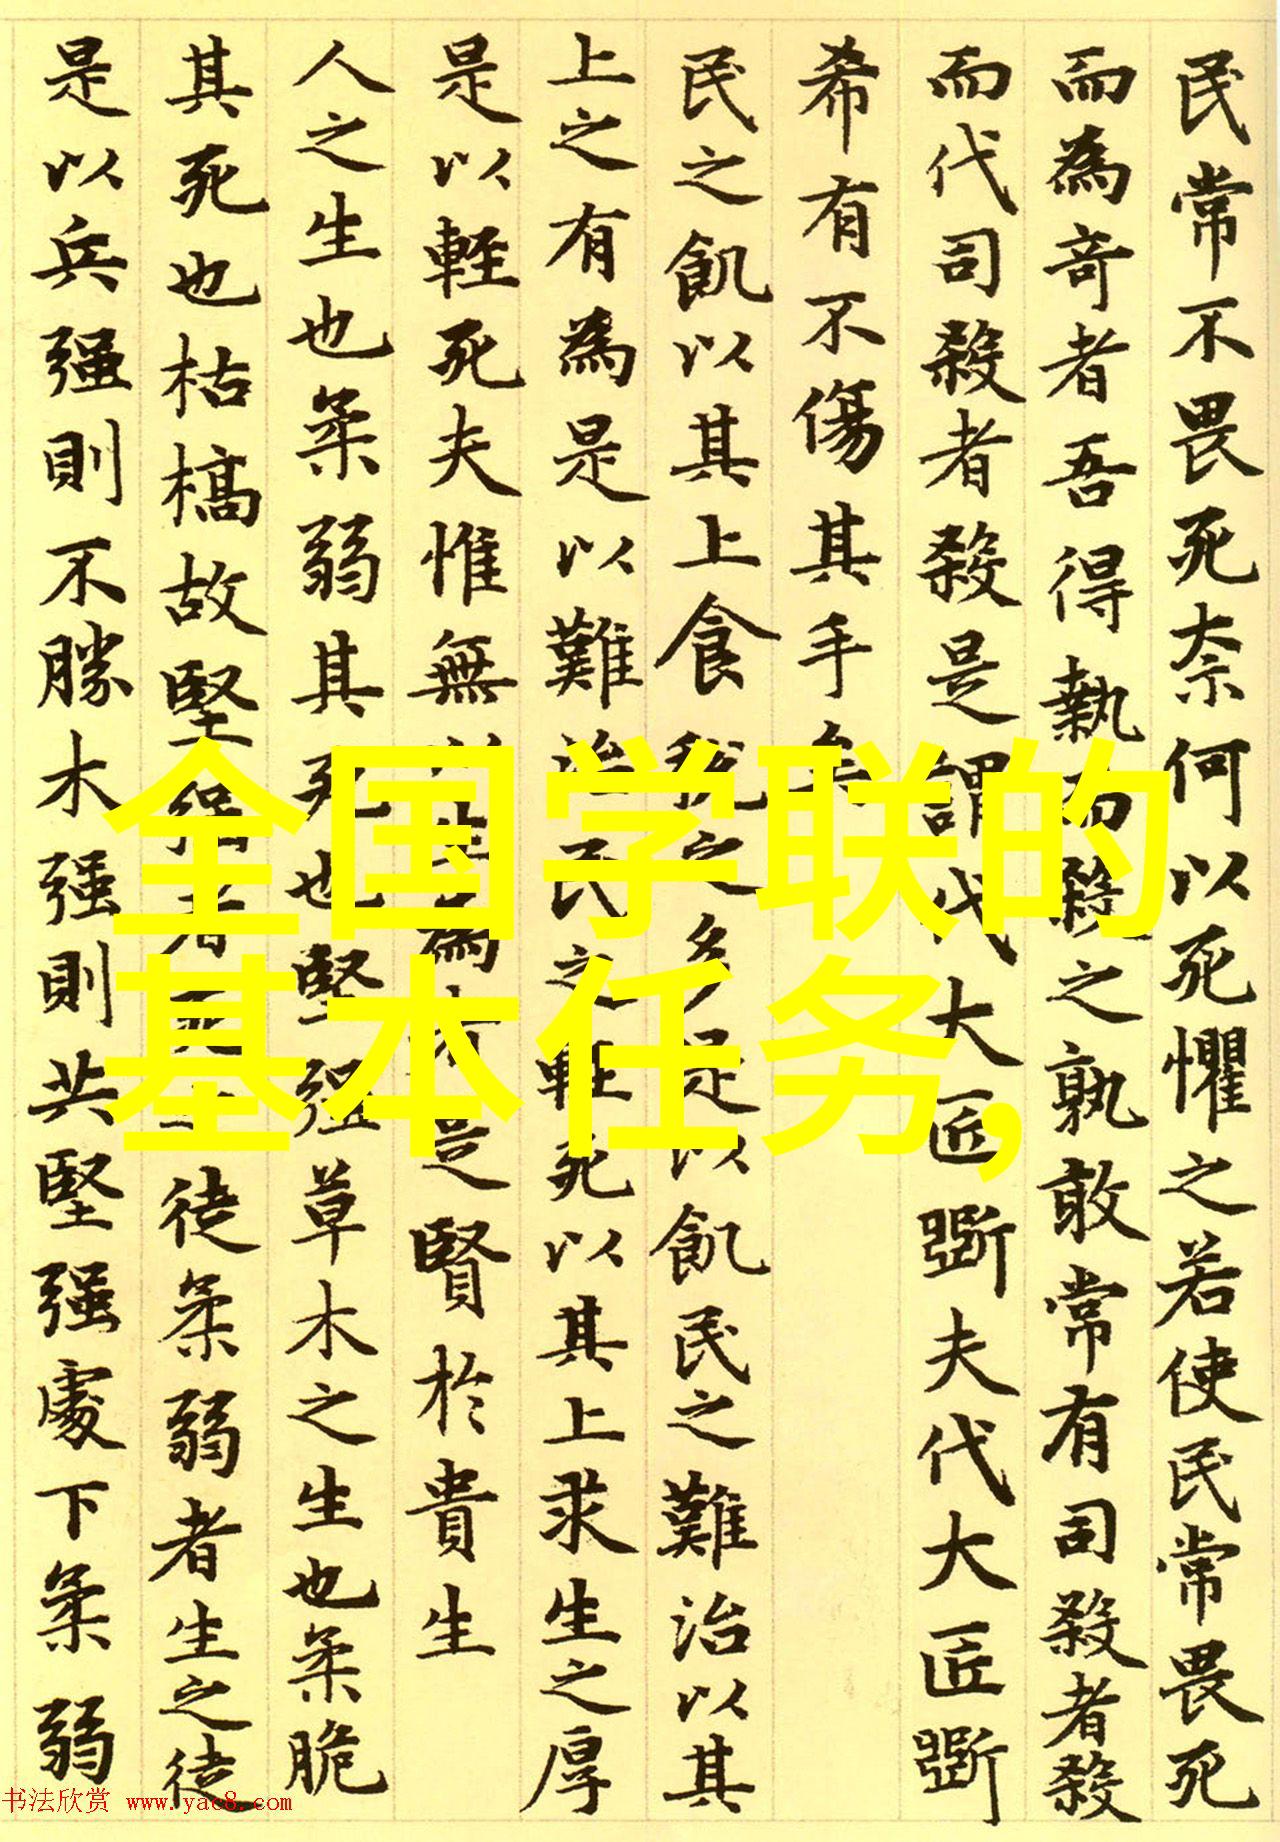 民常不畏死奈何以死懼之若使民常畏死
而為奇者吾得執而殺之孰敢常有司殺者殺
而代司殺者殺是謂代大匠斲夫代大匠斲
希有不傷其手矣
民之飢以其上食稅之多是以飢民之難治以其
上之有為是以難治民之輕死以其上求生之厚
是以輕死夫惟無以生為者是賢於貴生
人之生也柔弱其死也堅强草木之生也柔脆
其死也枯槁故堅强者死之徒柔弱者生之徒
是以兵强則不勝木强則共堅强處下柔弱
全国学联的
基本任务,
书法欣赏 www.yac8.com